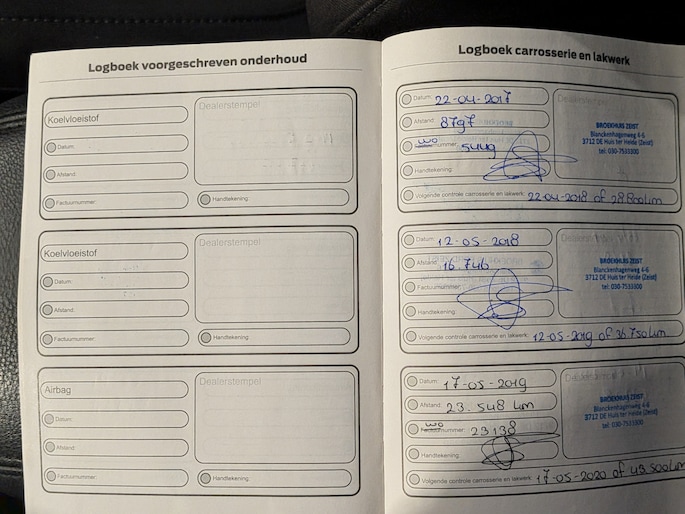 Logboek voorgeschreven onderhoud
Koelvloeistof
Dealerstempel
Datum:
Afstand:
Factuurnummer:
Handtekening:
Koelvloeistof
Dealerstempel
Datum:
Afstand:
Factuurnummer:
Handtekening:
Airbag
Dealerstempel
Datum:
Afstand:
Factuurnummer:
Handtekening:
Logboek carrosserie en lakwerk
Datum: 22-04-2017
Afstand: 8797
wo nummer: 5449
Handtekening:
Volgende controle carrosserie en lakwerk: 22-04-2018 of 28800km
Dealerstempel
BROEKHUIS ZEIST
Blanckenhagenweg 4-6
3712 DE Huis ter Heide (Zeist)
tel: 030-7533300
Datum: 12-05-2018
Afstand: 16.746
Factuurnummer:
Handtekening:
Volgende controle carrosserie en lakwerk: 12-05-2019 of 36.750km
Dealerstempel
BROEKHUIS ZEIST
Blanckenhagenweg 4-6
3712 DE Huis ter Heide (Zeist)
tel: 030-7533300
Datum: 17-05-2019
Afstand: 23.548 km
wo Factuurnummer: 23138
Handtekening:
Volgende controle carrosserie en lakwerk: 17-05-2020 of 43.500km
Dealerstempel
BROEKHUIS ZEIST
Blanckenhagenweg 4-6
3712 DE Huis ter Heide (Zeist)
tel: 030-7533300